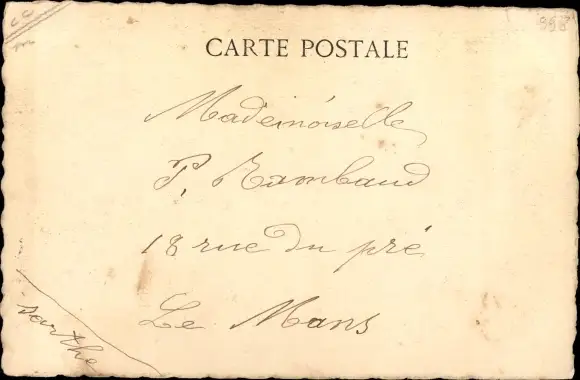 CC
998
CARTE POSTALE
Mademoiselle
P. Rambaud
18 rue du pré
Le Mans
Sarthe